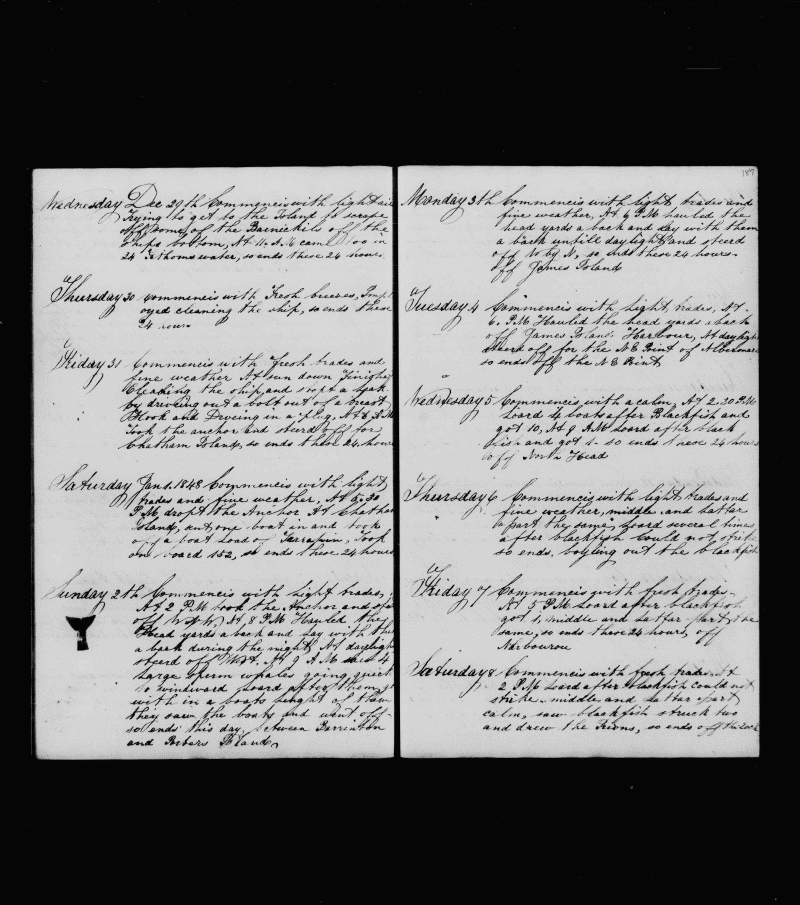 Wednesday Dec 29th Commencis with light air
Trying to get to the Island to scrape
off some of the Barnickils off the
ships bottom, At 11, A M came too in
24 Fathoms water, so ends these 24 hours.
Thursday 30 Commencis with Fresh breezes, Impl
oyed cleaning the ship, so ends these
24 hours
Friday 31 Commencis with Fresh trades and
fine weather At sun down Finighed
Cleaning the ship, and stopt a leak
by driveing out a bolt out of a breast
Hook and Driveing in a plug, At 8 P M
Took the anchor and steerd off for
Chatham Island, so ends these 24 hours
Saturday Jan 1. 1848 Commencis with light
trades and fine weather, At 5.30
P M dropt the Anchor At Chatham
Island, sent one boat in and took
off a boat load of Tarrapin, Took
on board 152, so ends these 24 hours
Sunday 2th Commencis with light trades,
At 2 P M took the Anchor and
off W by N, At 8 P M Hauled the
Head yards a back and lay with the
a back during the night, At daylight
steerd off At 9 A M saw 4
Large sperm whales going quick
to windward Loard after them
with in a boats lenght of them
they saw the boats and went off
so ends this day between Barrinton
and Porters Island
187
Monday 3th Commencis with light trades and
fine weather, At 6 P M hauled the
head yards a back and lay with them
a back untill daylight and steerd
off W by N, so ends these 24 hours.
off James Island
Tuesday 4 Commencis with light trades, At
6, P M Hauled the head yards a back
off James Island Harbour, At daylight
steerd off for the N E Point of Albemarl
so ends off the N E Point
Wednesday 5 Commencis with a calm, At 2.30 P M
Loard 4 boats after Blackfish and
got 10, At 9 A M Loard after black
fish and got 1 - so ends these 24 hours
off North Head
Thursday 6 Commencis with light trades and
fine weather, middle and latter
part the same, Loard several times
after blackfish would not strike
so ends, boyling out the blackfish
Friday 7 Commencis with fresh trades -
At 5 P M Loard after blackfish
got 1, middle and latter part the
same, so ends these 24 hours, off
Narbourou
Saturday 8 Commencis with fresh trades At
2 P M Loard after blackfish could not
strike - middle and latter part
calm, saw blackfish struck two
and drew the Irons, so ends off the